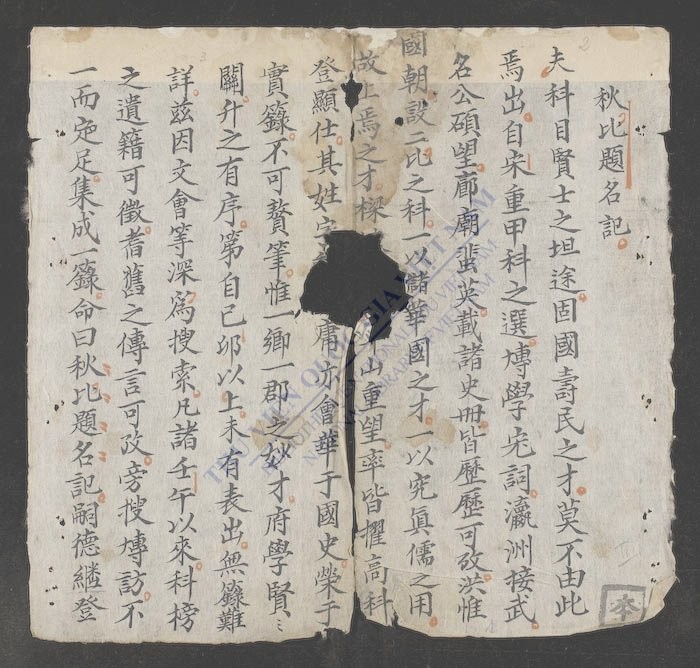 秋比題名記
夫科目賢士之坦途固國壽民之才莫不由此
焉出自宋重甲科之選博學宏詞瀛洲接武
名公碩望廊廟蜚英載諸史册皆歷歷可攷洪惟
國朝設二比之科一以儲華國之才一以究眞儒之用
故上焉之才樑山重望率皆擢高科
登顯仕其姓字庸亦會華于國史榮于
實籙不可贅筆惟一鄉一郡之妙才府學賢〻
關升之有序第自己卯以上未有表出無籙難
詳茲因文會等深爲搜索凡諸壬午以來科榜
之遺籍可徵耆舊之傳言可攷旁搜博訪不
一而足集成一籙命曰秋比題名記嗣德繼登
本
2
3
THƯ VIỆN QUỐC GIA VIỆT NAM